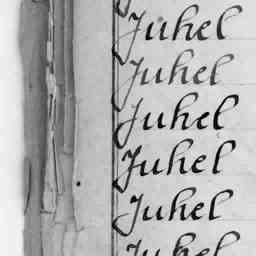 Juhel
Juhel
Juhel
Juhel
Juhel
Juhel